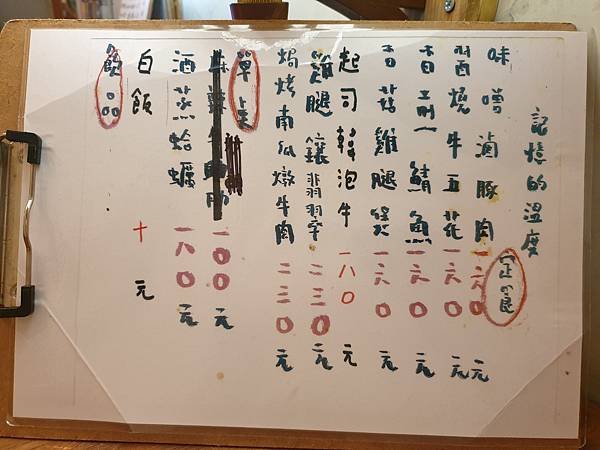 記憶的溫度
定食
味噌滷豚肉 一六0元
醬燒牛五花 一六0元
香煎鯖魚 一六0元
香菇雞腿煲 一六0元
起司韓泡牛 一八0元
雞腿鑲翡翠 二三0元
焗烤南瓜燉牛肉 二三0元
單點
一00元
酒蒸蛤蠣 一六0元
白飯 十元
飲品